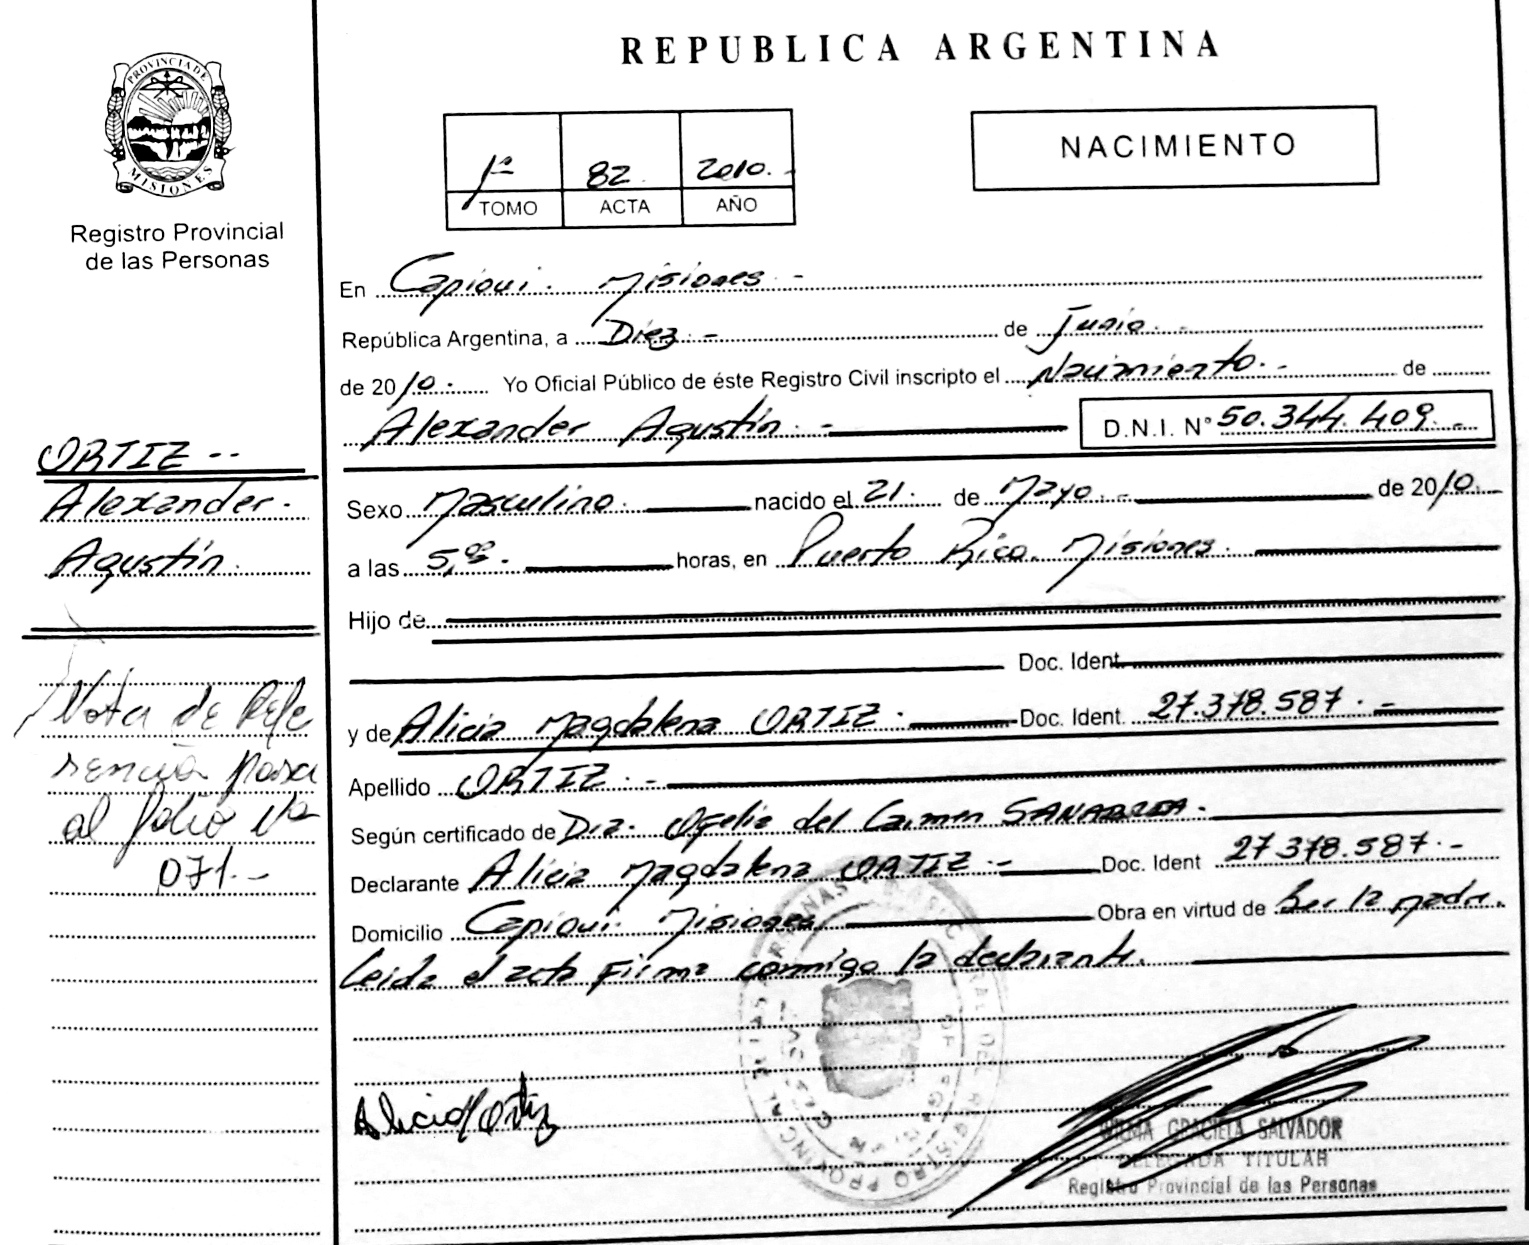 PROVINCIA DE
MISIONES
Registro Provincial
de las Personas
REPUBLICA ARGENTINA
1º 82 2010.-
TOMO ACTA AÑO
NACIMIENTO
En Capiovi. Misiones.-
República Argentina, a Diez.- de Junio.-
de 2010.- Yo Oficial Público de éste Registro Civil inscripto el Nacimiento.- de
Alexander Agustín.- D.N.I. Nº 50.344.409.-
ORTIZ --
Alexander.
Agustín.
Sexo Masculino. nacido el 21. de Mayo.- de 2010.
a las 5,00. horas, en Puerto Rico. Misiones.
Hijo de
Doc. Ident.
y de Alicia Magdalena ORTIZ. Doc. Ident. 27.378.587.-
Apellido ORTIZ.-
Según certificado de Dra. Ofelia del Carmen SANABRIA.
Declarante Alicia Magdalena ORTIZ.- Doc. Ident 27.378.587.-
Domicilio Capiovi. Misiones. Obra en virtud de Ser la madre.
Leida el acta firma conmigo la declarante.
Nota de Refe
rencia pasa
al folio Nº
071.-
Alicia Ortiz
WILMA GRACIELA SALVADOR
DELEGADA TITULAR
Registro Provincial de las Personas